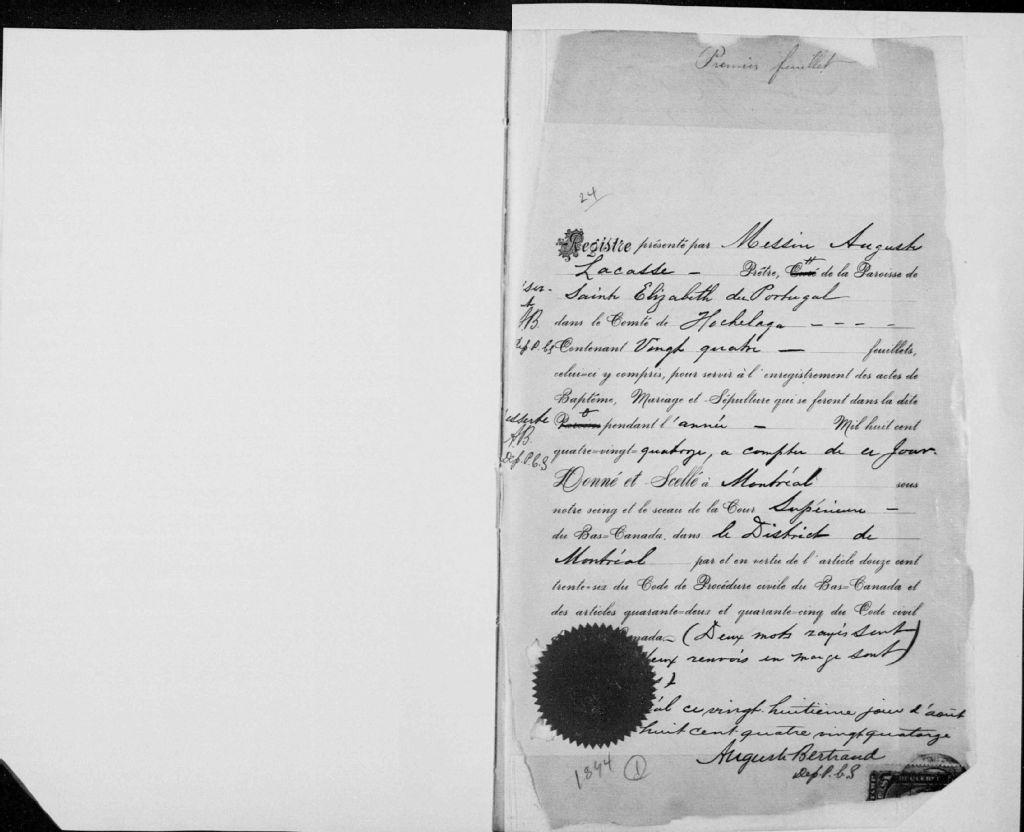 Premier feuillet
24
Registre présenté par Messire Auguste
Lacasse – Prêtre, Curé de la Paroisse de
Sainte Elizabeth du Portugal
dans le Comté de Hochelaga – – – –
Contenant Vingt quatre – feuillets,
celui=ci y compris, pour servir à l'enregistrement des actes de
Baptême, Mariage et Sépulture qui se feront dans la dite
Paroisse pendant l'année – Mil huit cent
quatre=vingt=quatorze, a compter de ce Jour.
Donné et Scellé à Montréal sous
notre seing et le sceau de la Cour Supérieure –
du Bas=Canada, dans le District de
Montréal par et en vertu de l'article douze cent
trente=six du Code de Procédure civile du Bas=Canada et
des articles quarante=deux et quarante=cinq du Code civil
(Deux mots rayés sont)
renvois en marge sont)
ce vingt huitième jour d'août
huit cent quatre vingt quatorze
Auguste Bertrand
Dep. P.C.S
desserte
A.B.
Dep. P.C.S
1894 1
QUEBEC